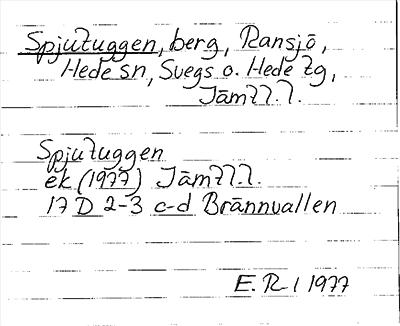 Spjutuggen, berg, Ransjö,
Hede sn, Svegs o. Hede tg,
Jämtl.l.
Spjutuggen
ek (1977) Jämtl.l.
17 D 2-3 c-d Brännvallen
E. R-l 1977